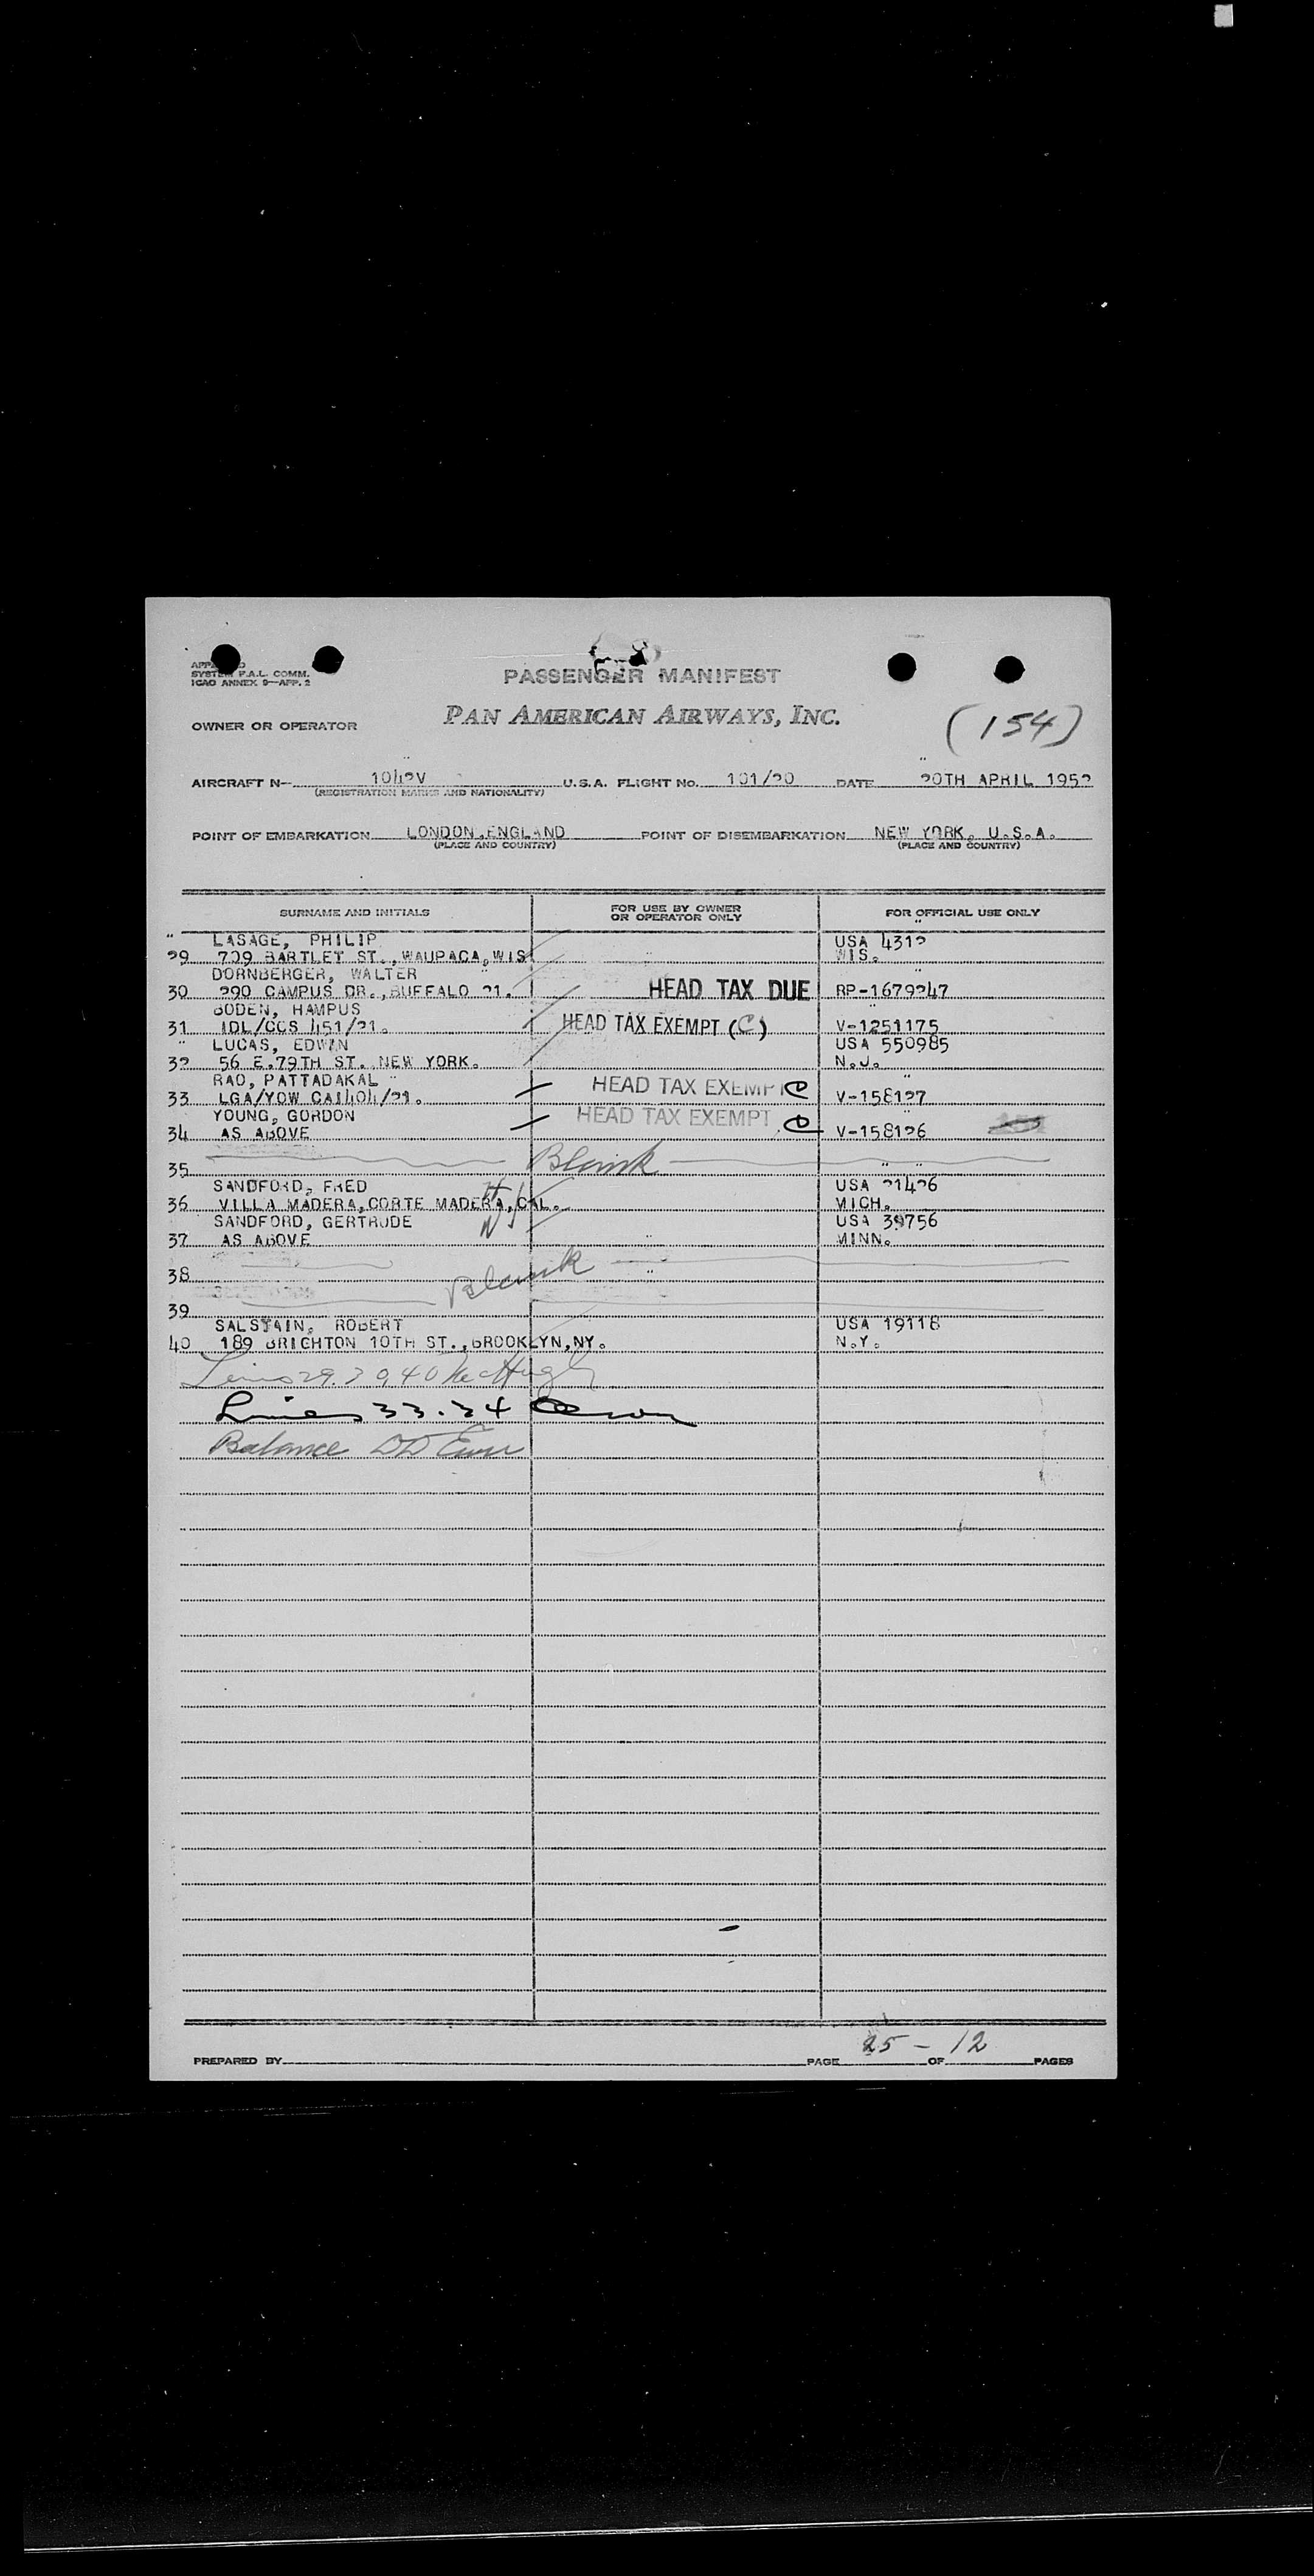 SYSTEM F.A.L. COMM.
ICAO ANNEX 9—APP. 2
PASSENGER MANIFEST
PAN AMERICAN AIRWAYS, INC.
OWNER OR OPERATOR
(154)
AIRCRAFT N— 1042V U.S.A. FLIGHT No. 101/20 DATE 20TH APRIL 1952
(REGISTRATION MARKS AND NATIONALITY)
POINT OF EMBARKATION LONDON, ENGLAND POINT OF DISEMBARKATION NEW YORK, U.S.A.
(PLACE AND COUNTRY) (PLACE AND COUNTRY)
SURNAME AND INITIALS FOR USE BY OWNER OR OPERATOR ONLY FOR OFFICIAL USE ONLY
LASAGE, PHILIP USA 4312
29 709 BARTLET ST., WAUPACA, WIS WIS.
DORNBERGER, WALTER
30 290 CAMPUS DR., BUFFALO 21. HEAD TAX DUE RP-1679247
BODEN, HAMPUS
31 IDL/CCS 451/21. HEAD TAX EXEMPT (C) V-1251175
LUCAS, EDWIN USA 550985
32 56 E.79TH ST. NEW YORK. N.J.
RAO, PATTADAKAL
33 LGA/YOW CA1404/21. HEAD TAX EXEMPT C V-158127
YOUNG, GORDON
34 AS ABOVE HEAD TAX EXEMPT C V-158126
35 Blank
SANDFORD, FRED USA 21426
36 VILLA MADERA, CORTE MADERA, CAL. MICH.
SANDFORD, GERTRUDE USA 39756
37 AS ABOVE MINN.
38 Blank
39
SALSTAIN, ROBERT USA 19118
40 189 BRIGHTON 10TH ST., BROOKLYN, NY. N.Y.
Lines 29.30,40 McHugh
Lines 33.34
Balance DD
25 - 12
PREPARED BY PAGE OF PAGES